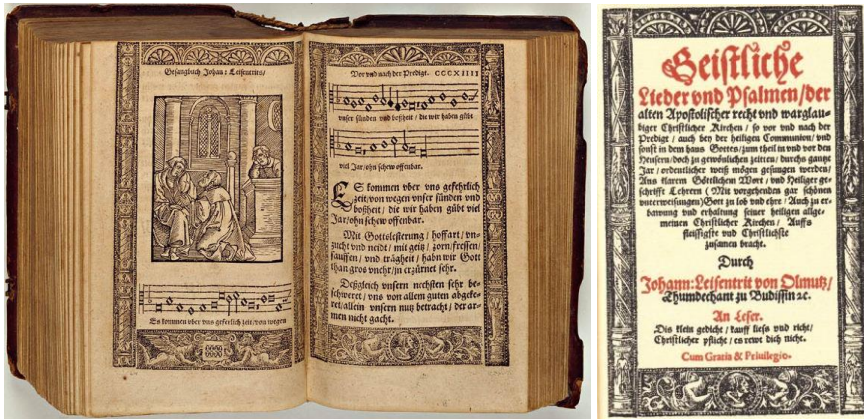 Gesangbuch Johan: Leisentrits/
Es kommen vber vns geferlich zeit/von wegen
Vor vnd nach der Predigt. CCCXIIII
vnser sünden vnd boßheit/ die wir haben gübt
viel Jar/ohn schew offenbar.
ES kommen vber vns gefehrlich
zeit/von wegen vnser sünden vnd
boßheit/ die wir haben gübt viel
Jar/ohn schew offenbar.
Mit Gottslesterung/ hoffart/ vn-
zucht vnd neidt/ mit geitz/ zorn/fressen/
sauffen/ vnd trägheit/ habn wir Gott
than gros vnehr/jn erzürnet sehr.
Deßgleich vnsern nechsten sehr be-
schweret/ vns von allem guten abgeke-
ret/allein vnsern nutz betracht/ der ar-
men nicht gacht.
Geistliche
Lieder vnd Psalmen/der
alten Apostolischer recht vnd warglau-
biger Christlicher Kirchen/ so vor vnd nach der
Predigt/ auch bey der heiligen Communion/ vnd
sonst in dem haus Gottes/zum theil in vnd vor den
Heusern/doch zu gewönlichen zeitten/ durchs gantze
Jar/ ordentlicher weiß mögen gesungen werden/
Aus klarem Göttlichem Wort/ vnd Heiliger ge-
schrifft Lehrern (Mit vorgehenden gar schönen
vnterweisungen)Gott zu lob vnd ehre/ Auch zu er-
bawung vnd erhaltung seiner heiligen allge-
meinen Christlicher Kirchen/ Auffs
fleissigste vnd Christlichste
zusamen bracht.
Durch
Johann: Leisentrit von Olmutz/
Thumdechant zu Budissin ꝛc.
An Leser.
Dis klein gedicht/ kauff lies vnd richt/
Christlicher pflicht/ es rewt dich nicht.
Cum Gratia & Priuilegio.